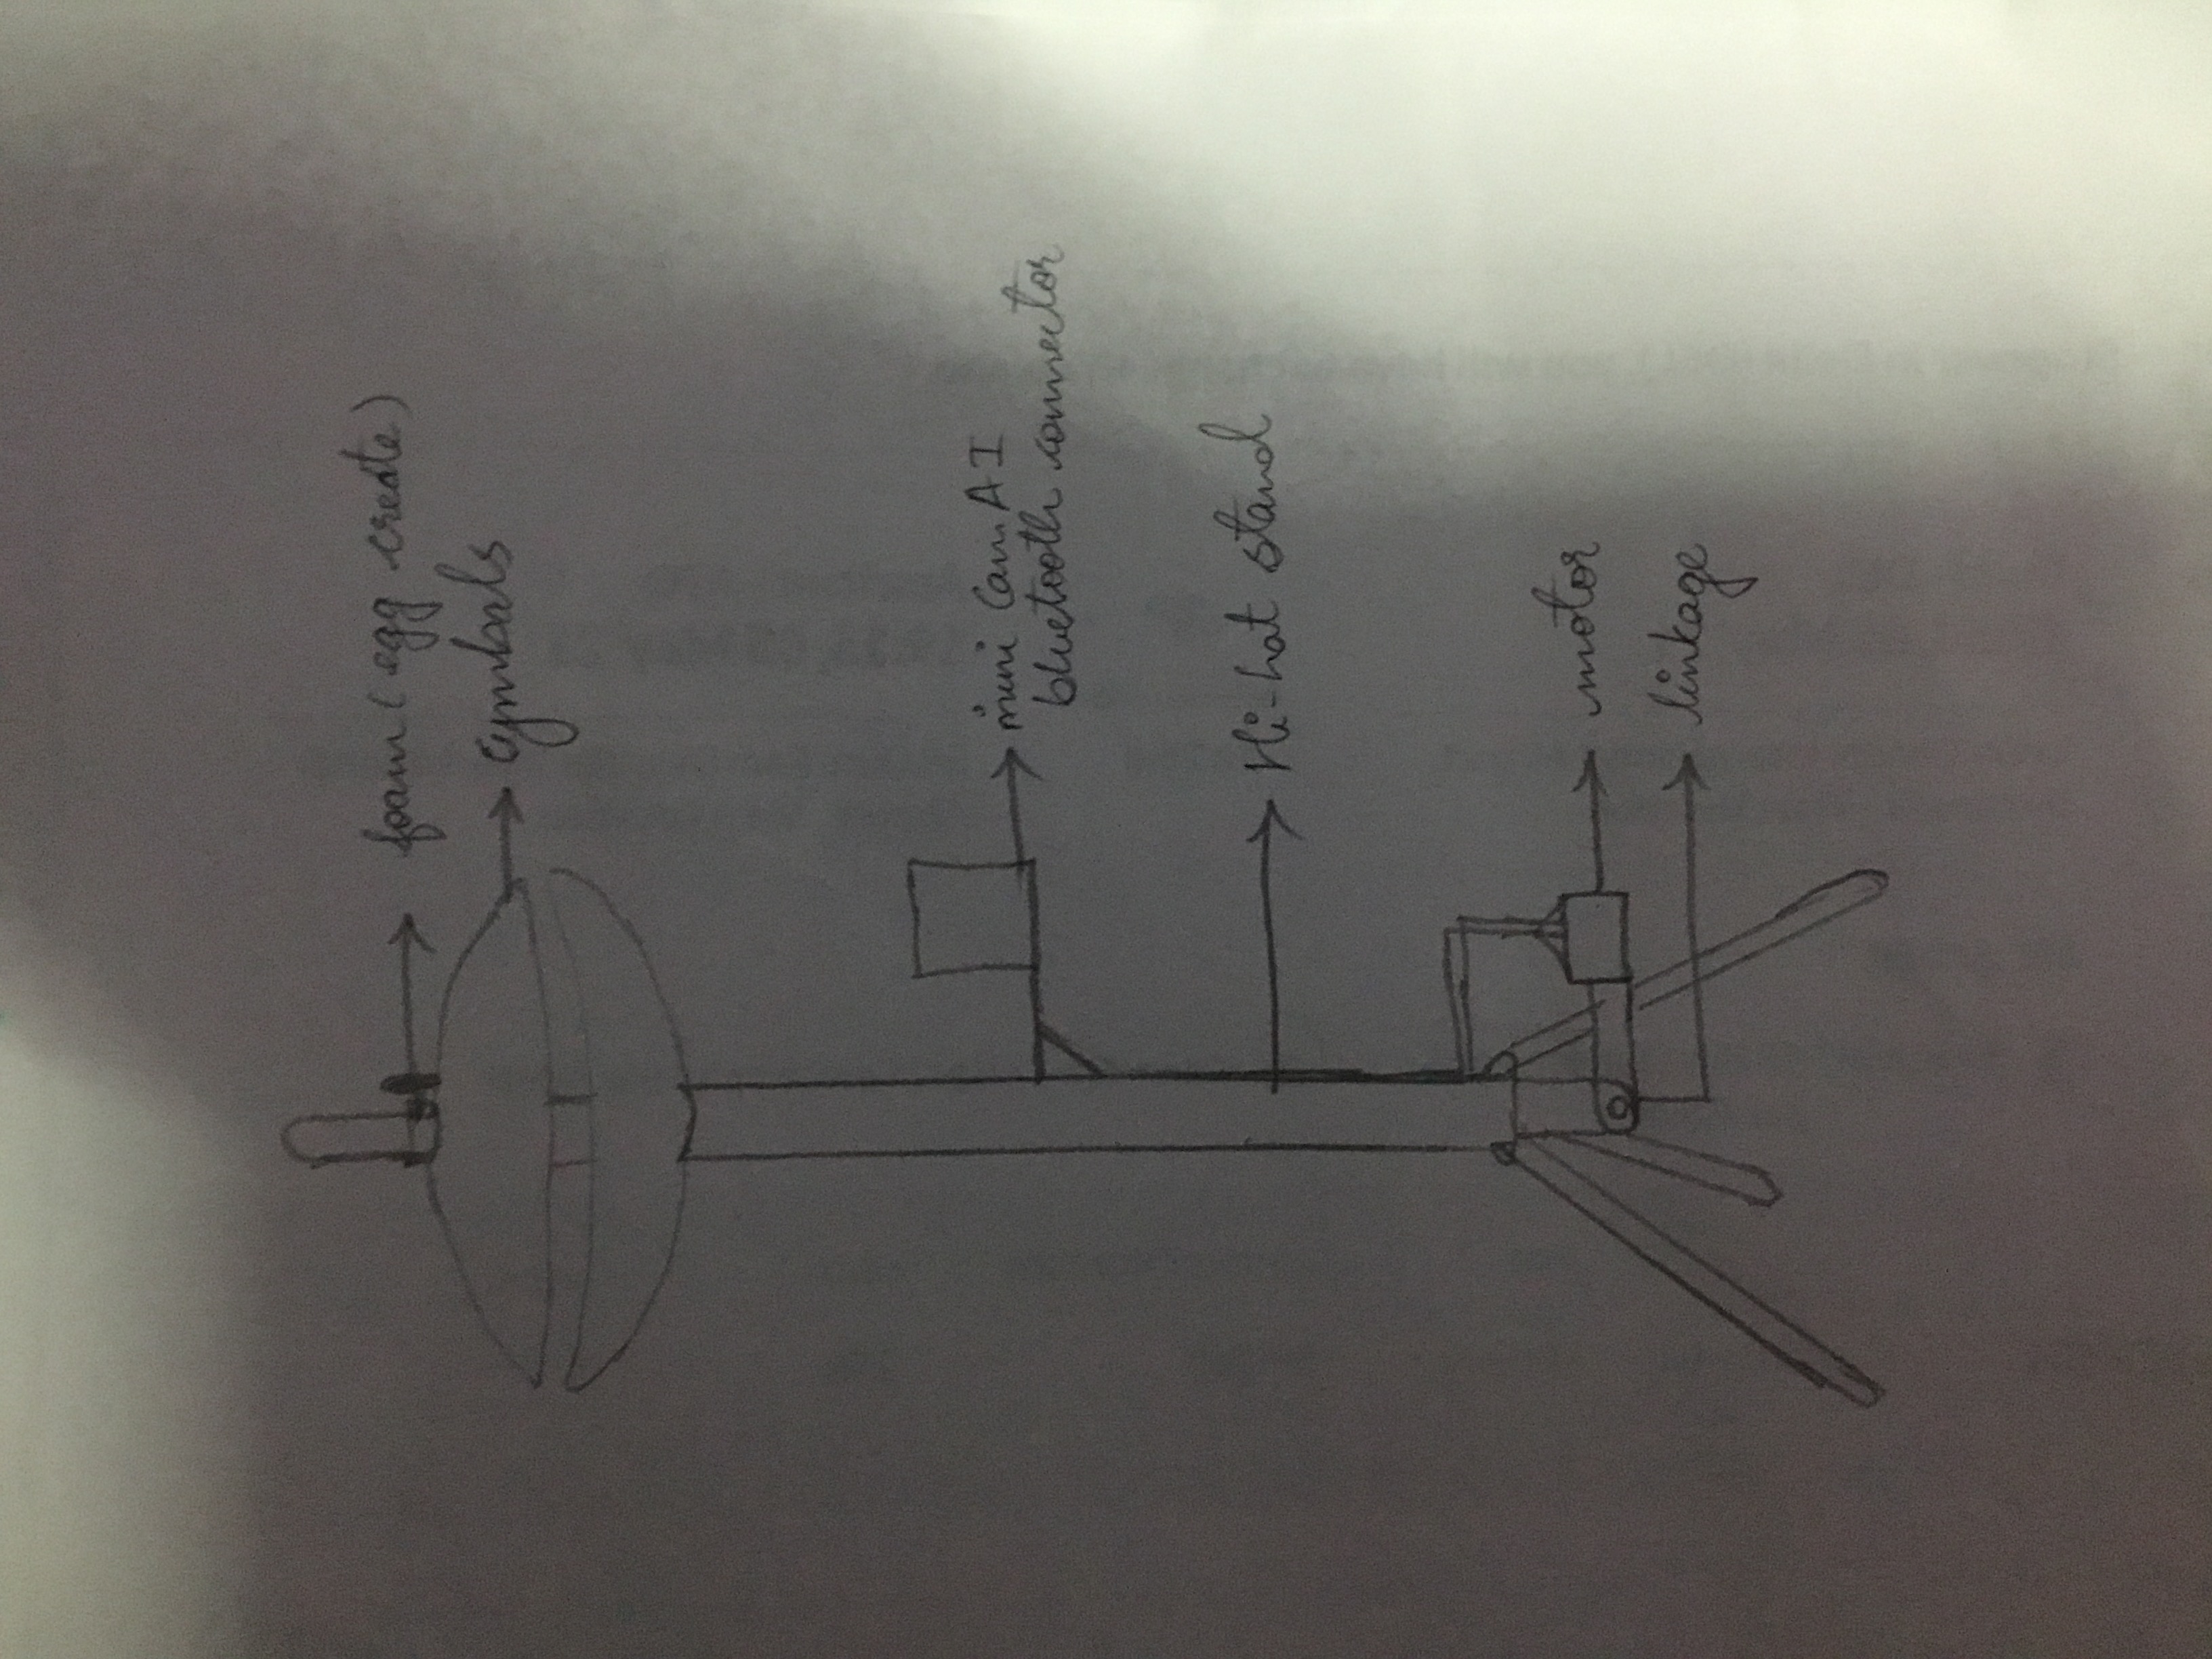 foam (egg create)
cymbals
mini Cam AI
bluetooth connector
Hi-hat stand
motor
linkage